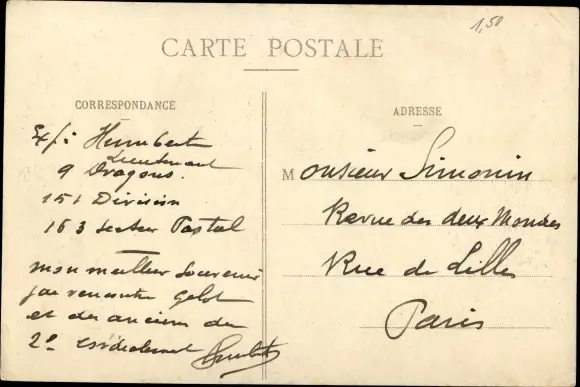 1,50
CARTE POSTALE
CORRESPONDANCE
ADRESSE
Humbert
Lieutenant
9 Dragons.
151 Division
163 Secteur Postal
mon meilleur souvenir
j'ai rencontré Gelot
et des anciens du
2e cordialement Humbert
Monsieur Simonin
Revue des deux Mondes
Rue de Lille
Paris